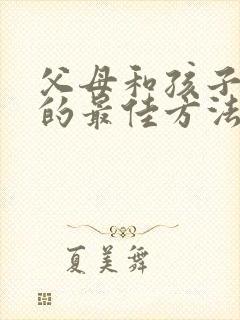 父母和孩子
的最佳方法
夏美舞